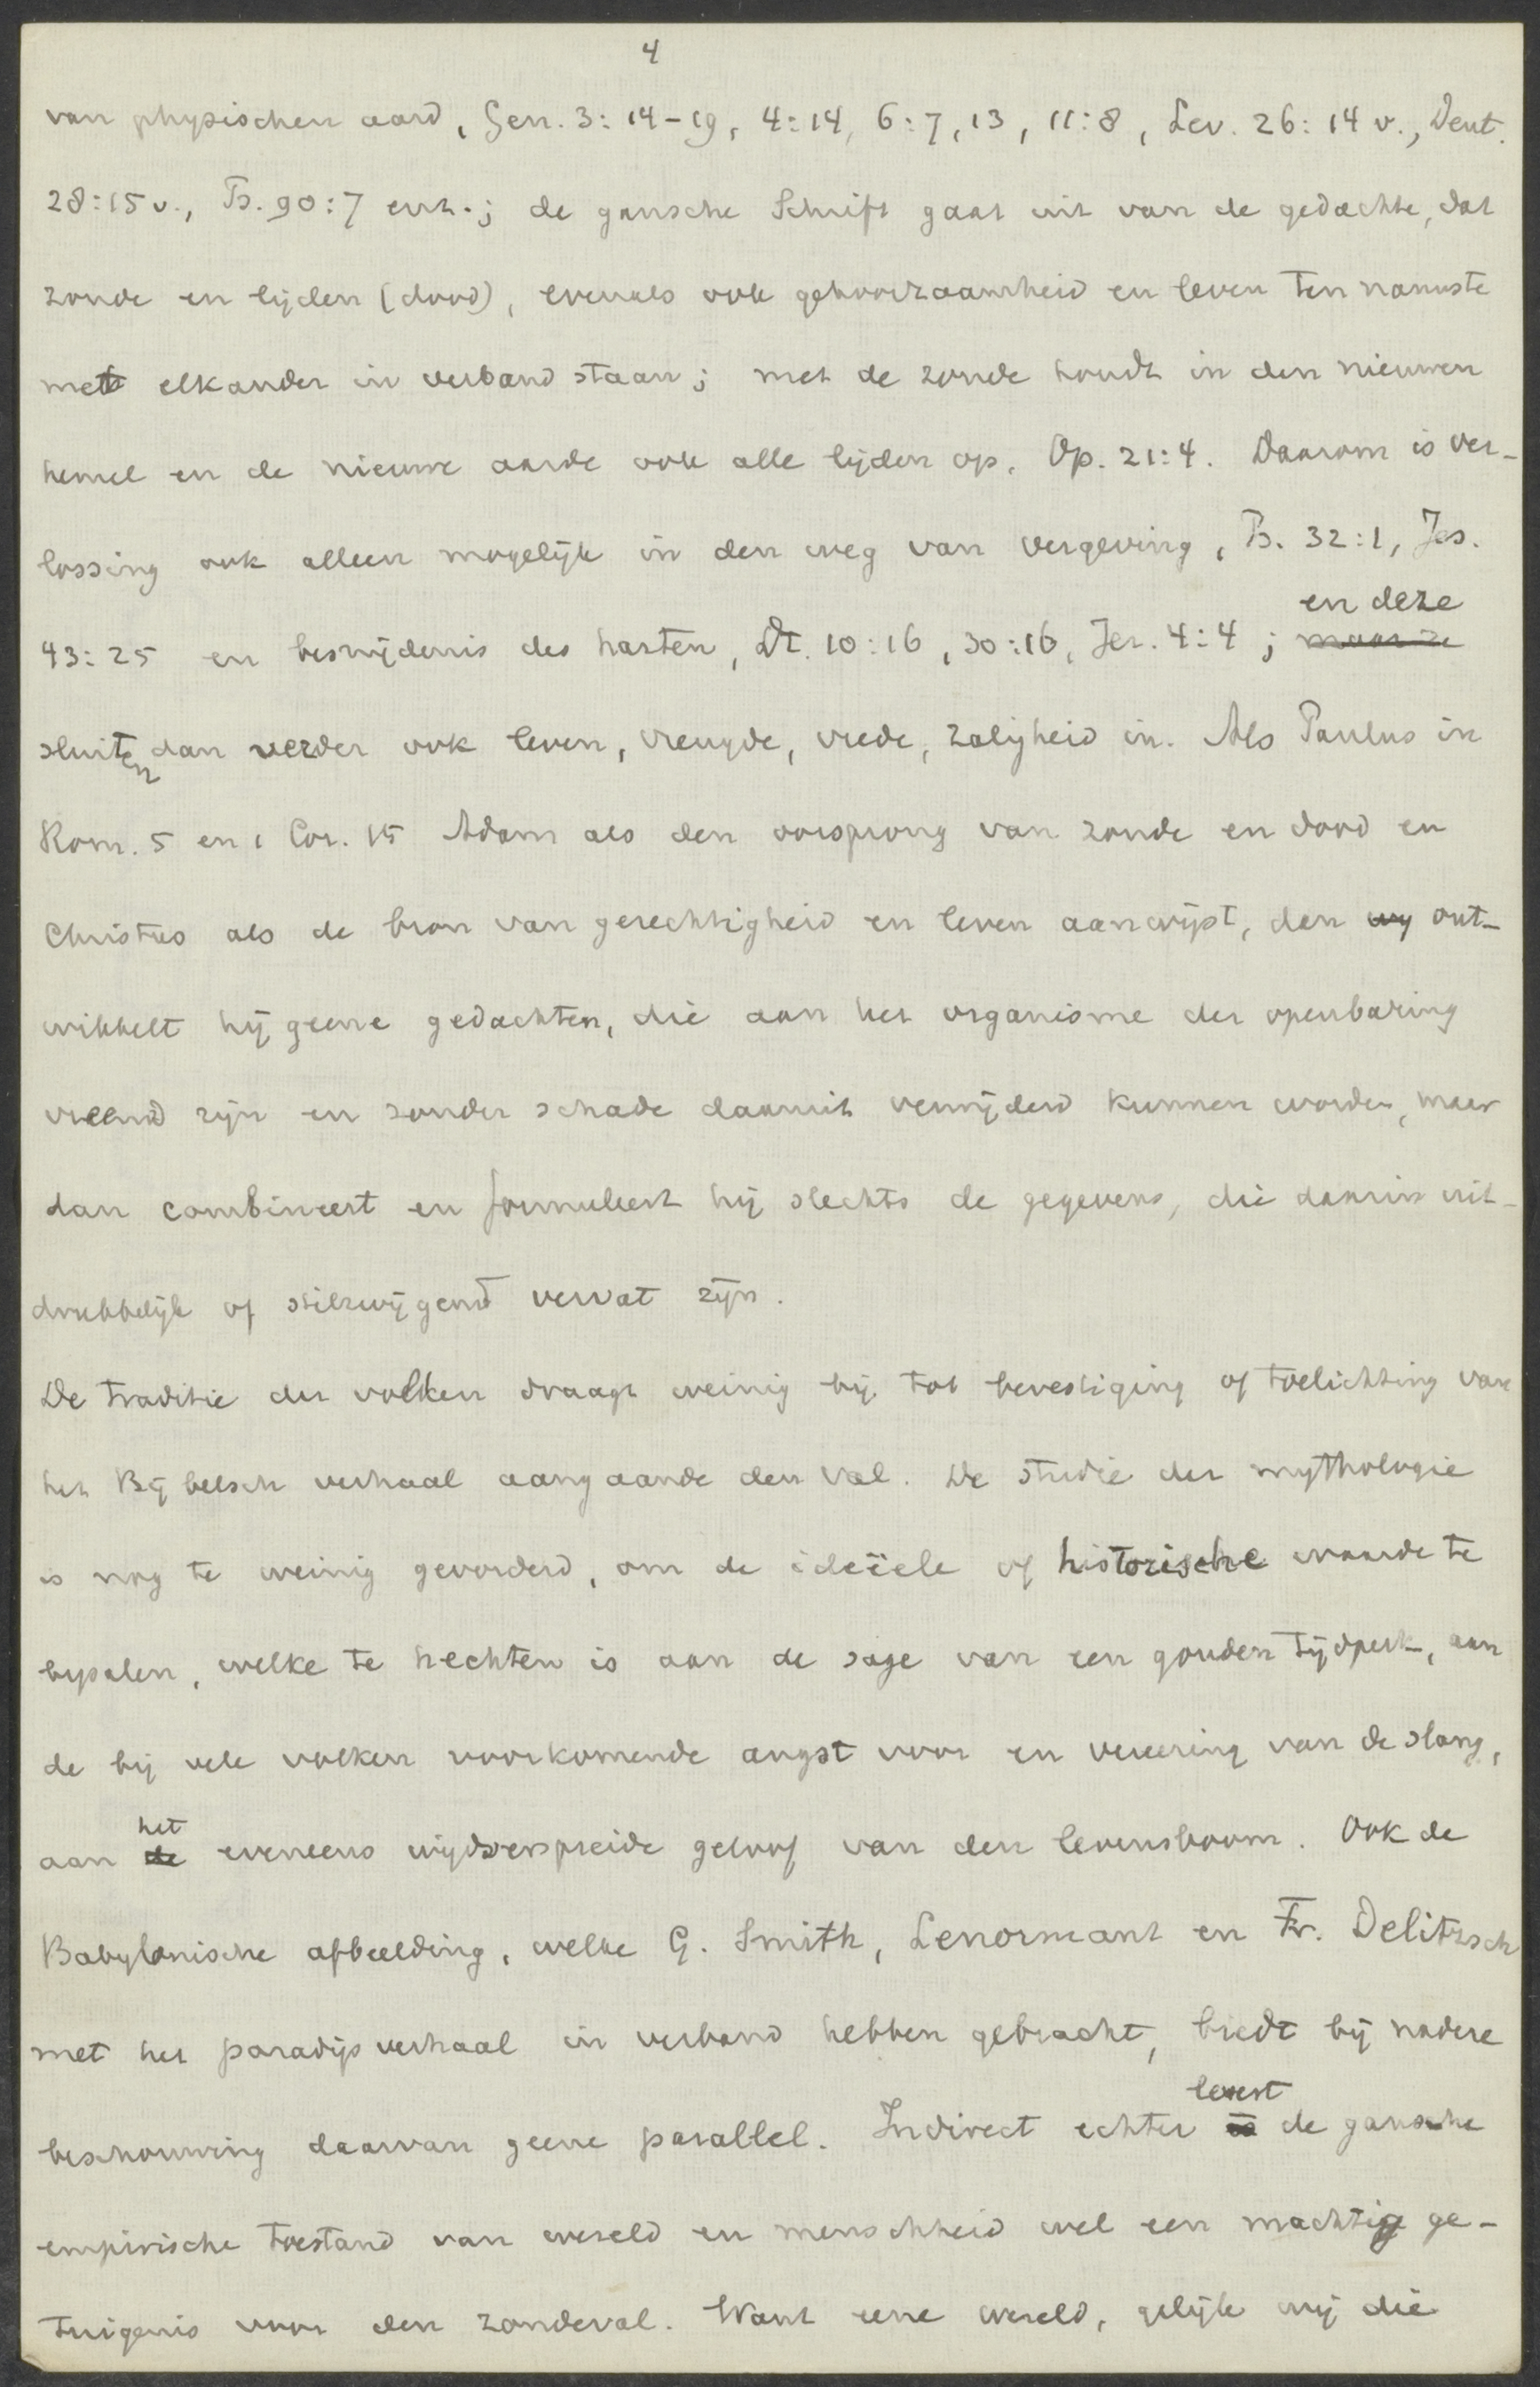 4
van physischen aard, Gen. 3:14-19, 4:14, 6:7,13, 11:8, Lev. 26:14 v., Deut.
28:15 v., Ps. 90:7 enz.; de gansche Schrift gaat uit van de gedachte, dat
zonde en lijden (dood), evenals ook gehoorzaamheid en leven ten nauwste
met elkander in verband staan; met de zonde houdt in den nieuwen
hemel en de nieuwe aarde ook alle lijden op, Op. 21:4. Daarom is ver-
lossing ook alleen mogelijk in den weg van vergeving, Ps. 32:1, Jes.
en deze
43:25 en besnijdenis des harten, Dt. 10:16, 30:16, Jer. 4:4; maar ze
sluiten dan verder ook leven, vreugde, vrede, zaligheid in. Als Paulus in
Rom. 5 en 1 Cor. 15 Adam als den oorsprong van zonde en dood en
Christus als de bron van gerechtigheid en leven aanwijst, dan wij ont-
wikkelt hij geene gedachten, die aan het organisme der openbaring
vreemd zijn en zonder schade daaruit vermijderd kunnen worden, maar
dan combineert en formuleert hij slechts de gegevens, die daarin uit-
drukkelijk of stilzwijgend vervat zijn.
De traditie der volken draagt weinig bij tot bevestiging of toelichting van
het Bijbelsch verhaal aangaande den val. De studie der mythologie
is nog te weinig gevorderd, om de ideëele of historische waarde te
bepalen, welke te hechten is aan de sage van een gouden tijdperk, aan
de bij vele volken voorkomende angst voor en vereering van de slang,
het
aan de eveneens wijdverspreide geloof van den levensboom. Ook de
Babylonische afbeelding, welke G. Smith, Lenormant en Fr. Delitzsch
met het paradijsverhaal in verband hebben gebracht, biedt bij nadere
levert
beschouwing daarvan geene parallel. Indirect echter is de gansche
empirische toestand van wereld en menschheid wel een machtig ge-
tuigenis voor den zondeval. Want eene wereld, gelijk wij die